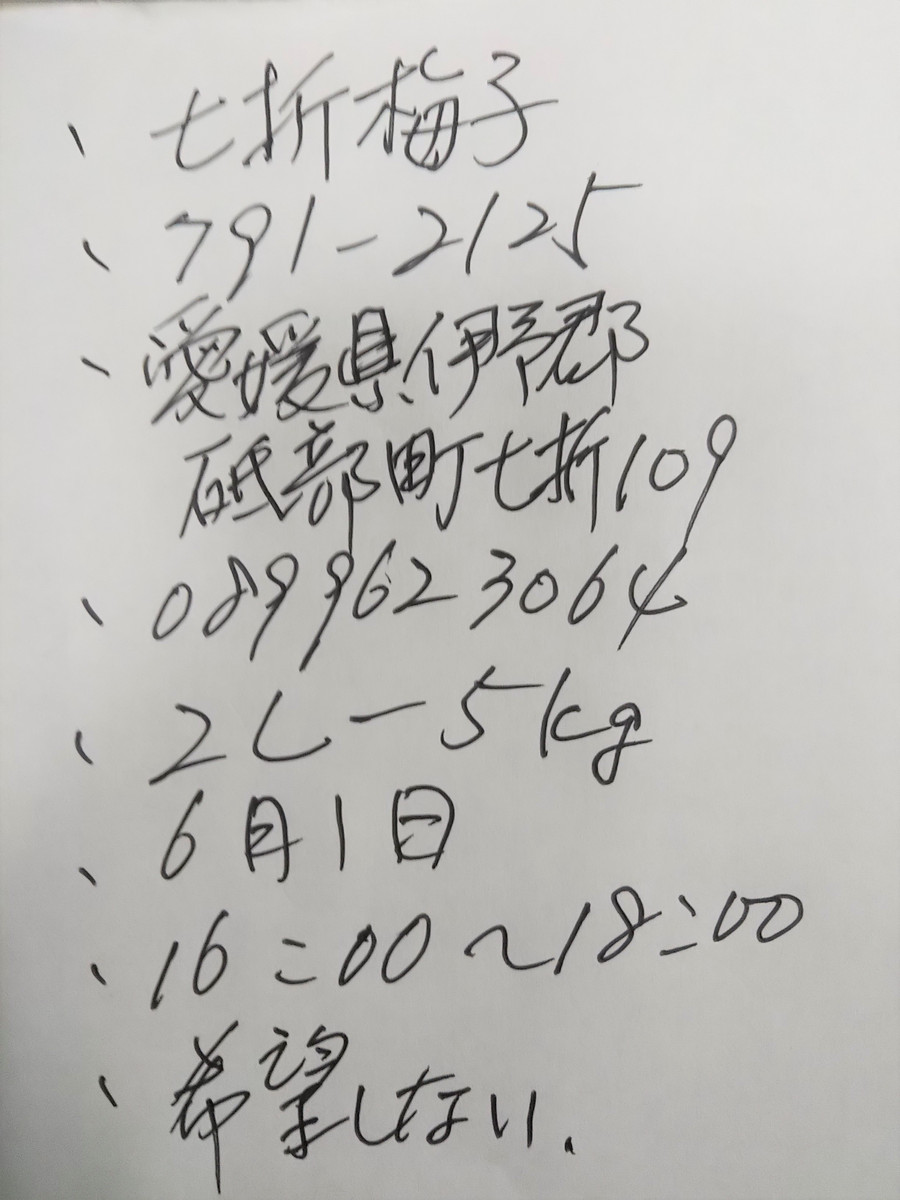 、七折梅子
、791-2125
、愛媛県伊予郡
砥部町七折109
、0899623064
、2L-5kg
、6月1日
、16:00~18:00
、希望しない.